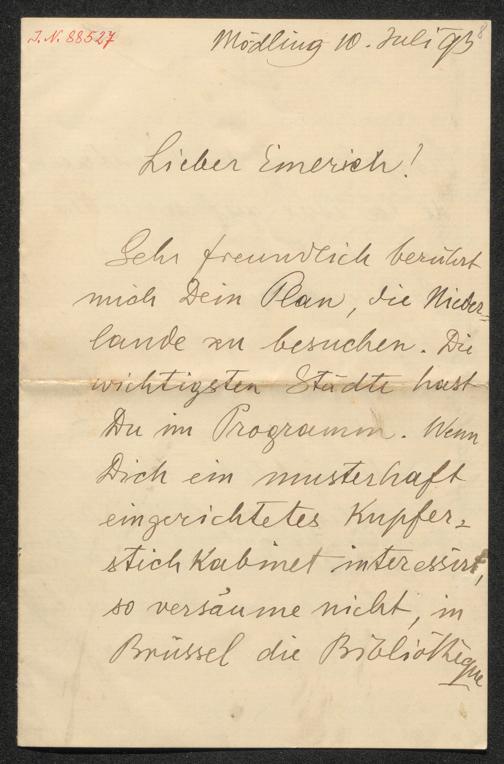 J. N. 88527
Mödling 10. Juli 93
8
Lieber Emerich!
Sehr freundlich berührt
mich Dein Plan, die Nieder=
lande zu besuchen. Die
wichtigsten Städte hast
Du im Programm. Wenn
Dich ein musterhaft
eingerichtetes Kupfer=
stichKabinet interessirt,
so versäume nicht, in
Brüssel die Bibliothèque